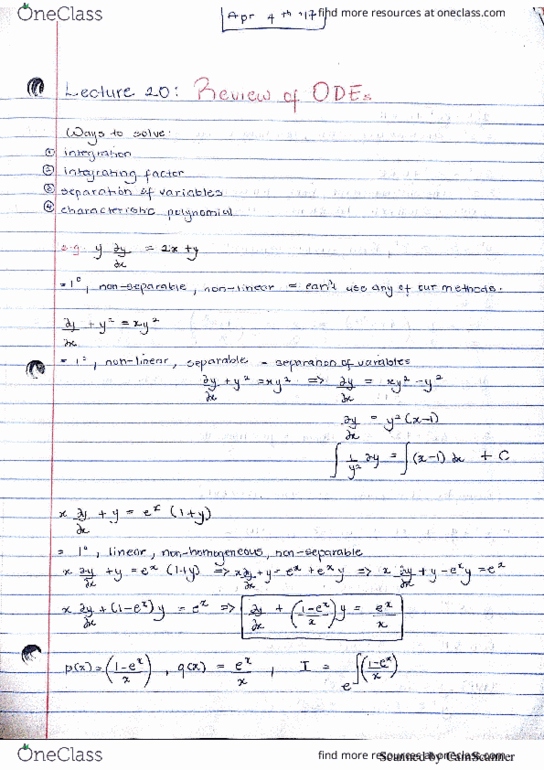 OneClass
Apr 4th '17
find more resources at oneclass.com
Lecture 20: Review of ODEs
Ways to solve:
① integration
② integrating factor
③ separation of variables
④ characteristic polynomial
e.g. y ∂y/∂x = 2x + y
= 1°, non-separable, non-linear = can't use any of our methods.
∂y/∂x + y² = xy²
= 1°, non-linear, separable - separation of variables
∂y/∂x + y² = xy² => ∂y/∂x = xy² - y²
∂y/∂x = y²(x-1)
∫ 1/y² ∂y = ∫(x-1) ∂x + C
x ∂y/∂x + y = eˣ (1+y)
= 1°, linear, non-homogeneous, non-separable
x ∂y/∂x + y = eˣ (1+y) => x ∂y/∂x + y = eˣ + eˣy => x ∂y/∂x + y - eˣy = eˣ
x ∂y/∂x + (1-eˣ)y = eˣ => ∂y/∂x + ((1-eˣ)/x) y = eˣ/x
p(x) = ((1-eˣ)/x), q(x) = eˣ/x, I = e^∫((1-eˣ)/x)
OneClass
find more resources at oneclass.com
Scanned by CamScanner